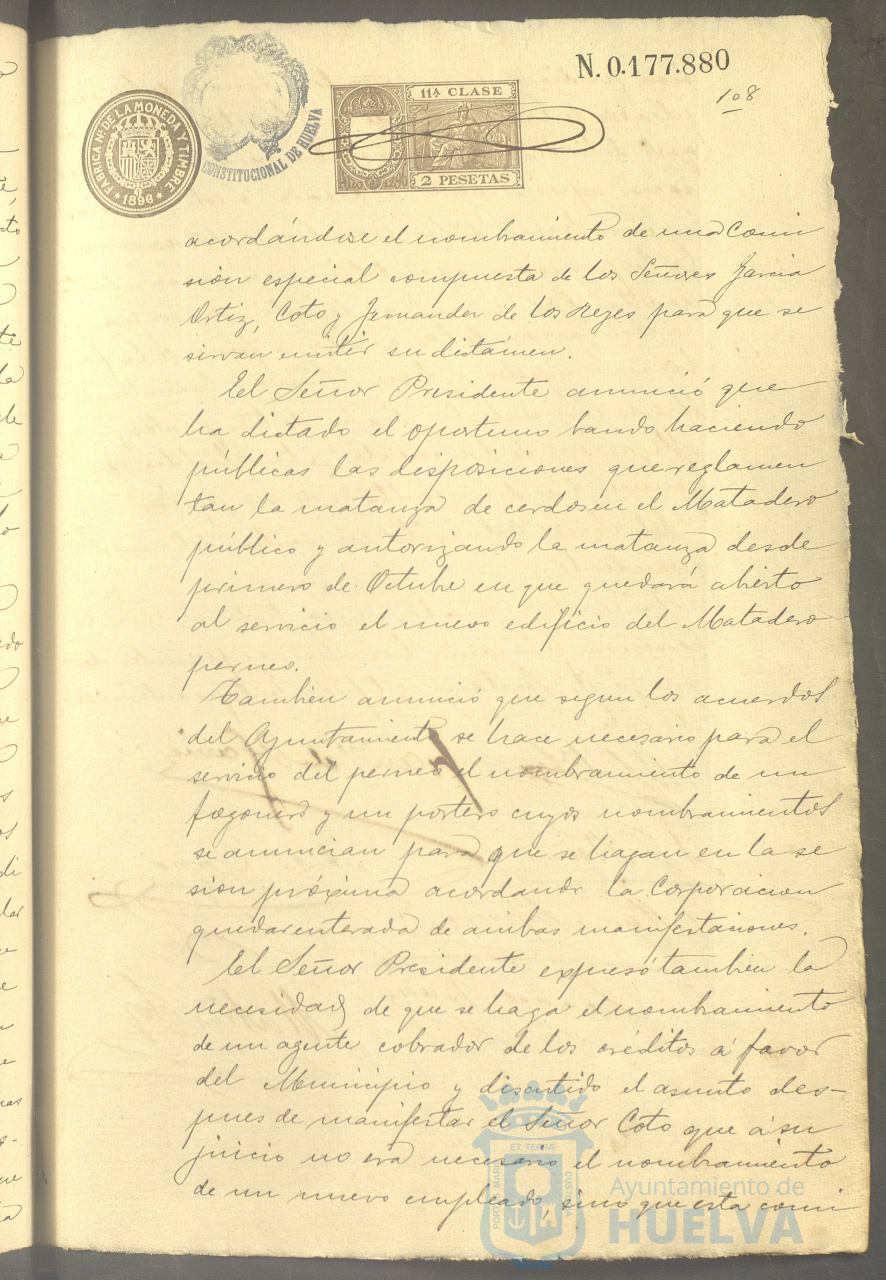 N. 0.177.880
108
FABRICA N. DE LA MONEDA Y TIMBRE
1890
CONSTITUCIONAL DE HUELVA
11ª CLASE
2 PESETAS
acordándose el nombramiento de una Comi
sion especial compuesta de los Señores Garcia
Ortiz, Coto y Fernandez de los Reyes para que se
sirvan emitir su dictámen.
El Señor Presidente anunció que
ha dictado el oportuno bando haciendo
públicas las disposiciones que reglamen
tan la matanza de cerdos en el Matadero
público y autorizando la matanza desde
primero de Octubre en que quedará abierto
al servicio el nuevo edificio del Matadero
perneo.
Tambien anunció que segun los acuerdos
del Ayuntamiento se hace necesario para el
servicio del perneo el nombramiento de un
fogonero y un portero cuyos nombramientos
se anuncian para que se hagan en la se
sion próxima acordando la Corporacion
quedar enterada de ambas manifestaciones.
El Señor Presidente expresó tambien la
necesidad de que se haga el nombramiento
de un agente cobrador de los créditos á favor
del Municipio y discutido el asunto des-
pues de manifestar el Señor Coto que á su
juicio no era necesario el nombramiento
de un nuevo empleado, sino que esta comi
PORTUS MARIS ET TERRÆ CUSTODIA
Ayuntamiento de
HUELVA